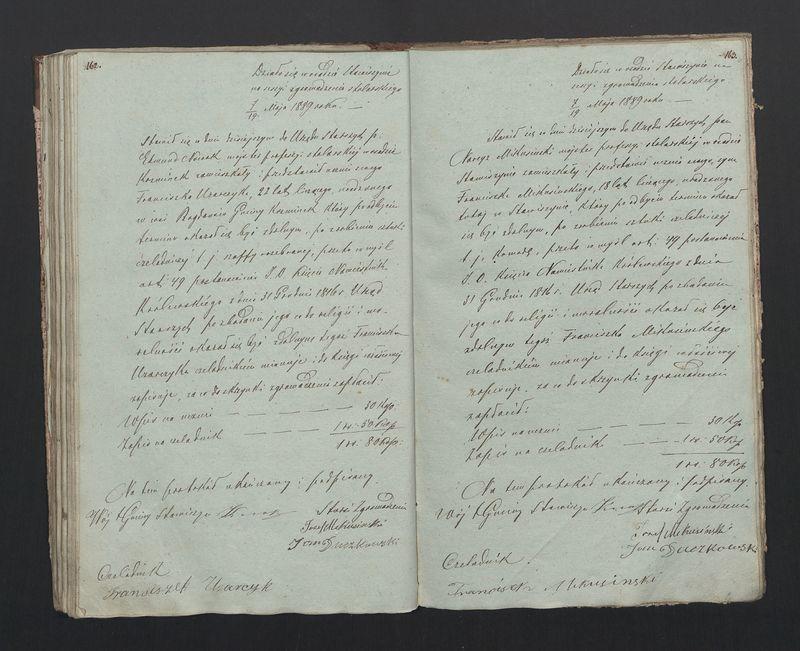 162.
Działo się w mieście Stawiszynie
na sesyi zgromadzenia stolarskiego
7/19 Maja 1889 roku. —
Stawił się w dniu dzisiejszym do Urzędu Starszych p.
Edmund majster professyi stolarskiej w mieście
Koźminek zamieszkały i przedstawił ucznia swego
Franciszka Urarczyka, 22 lat liczącego, urodzonego
w wsi Bogdanów Gminy Koźminek, który po odbyciu
terminu okazał się być zdolnym, po zrobieniu sztuki
czeladniczej t. j. szaffy rozebranej, przeto w myśl
art. 49 postanowienia J. O. Księcia Namiestnika
Królewskiego z dnia 31 Grudnia 1816 r. Urząd
Starszych po zbadaniu jego co do religii i mo-
ralności okazał się być zdolnym tegoż Franciszka
Urarczyka czeladnikiem mianuje i do księgi właściwej
zapisuje, za co do skrzynki zgromadzenia zapłacił:
Wpis na ucznia — — — — 30 Kop.
Zapis na czeladnika — — — 1 rs. 50 Kop.
1 rs. 80 Kop.
Na tem protokół ukończony i podpisany.
Wójt Gminy Stawiszyn
Starsi Zgromadzenia
Józef Mikusiński
Jan Duczkowski
Czeladnik
Franciszek Urarcyk
163.
Działo się w mieście Stawiszynie na
sesyi zgromadzenia stolarskiego
7/19 Maja 1889 roku. —
Stawił się w dniu dzisiejszym do Urzędu Starszych pan
Narcyz Mikusiński majster professyi stolarskiej w mieście
Stawiszynie zamieszkały i przedstawił ucznia swego, syna
Franciszka Mikusińskiego, 18 lat liczącego, urodzonego
tutaj w Stawiszynie, który po odbyciu terminu okazał
się być zdolnym, po zrobieniu sztuki czeladniczej
t. j. Komody, przeto w myśl art. 49 postanowienia
J. O. Księcia Namiestnika Królewskiego z dnia
31 Grudnia 1816 r. Urząd Starszych po zbadaniu
jego co do religii i moralności okazał się być
zdolnym tegoż Franciszka Mikusińskiego
czeladnikiem mianuje i do księgi właściwej
zapisuje, za co do skrzynki zgromadzenia
zapłacił:
Wpis na ucznia — — — 30 Kop.
Zapis na czeladnika — — — 1 rs. 50 Kop.
1 rs. 80 Kop
Na tem protokół ukończony i podpisany.
Wójt Gminy Stawiszyn
Starsi Zgromadzenia
Józef Mikusiński
Jan Duczkowski
Czeladnik
Franciszek Mikusiński